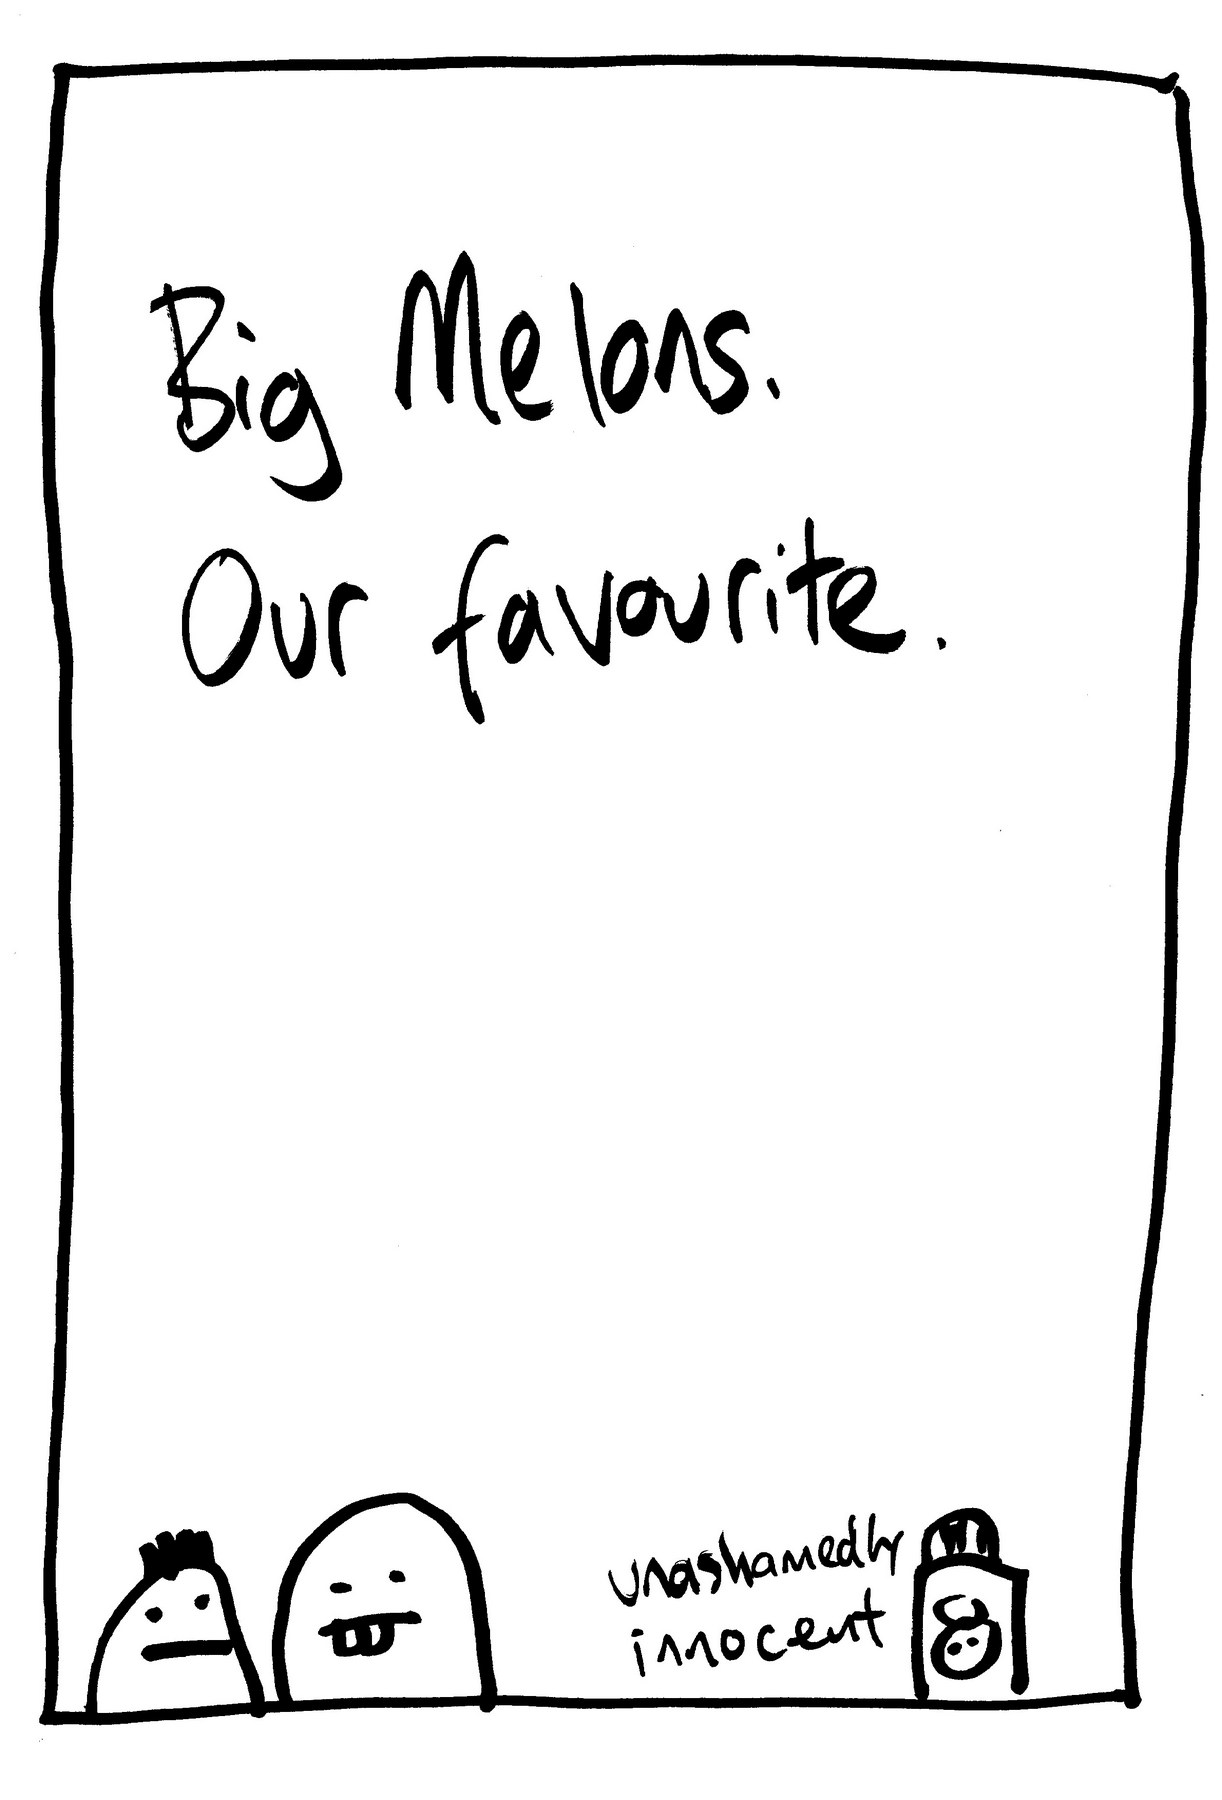 Big Melons.
Our favourite.
unashamedly
innocent